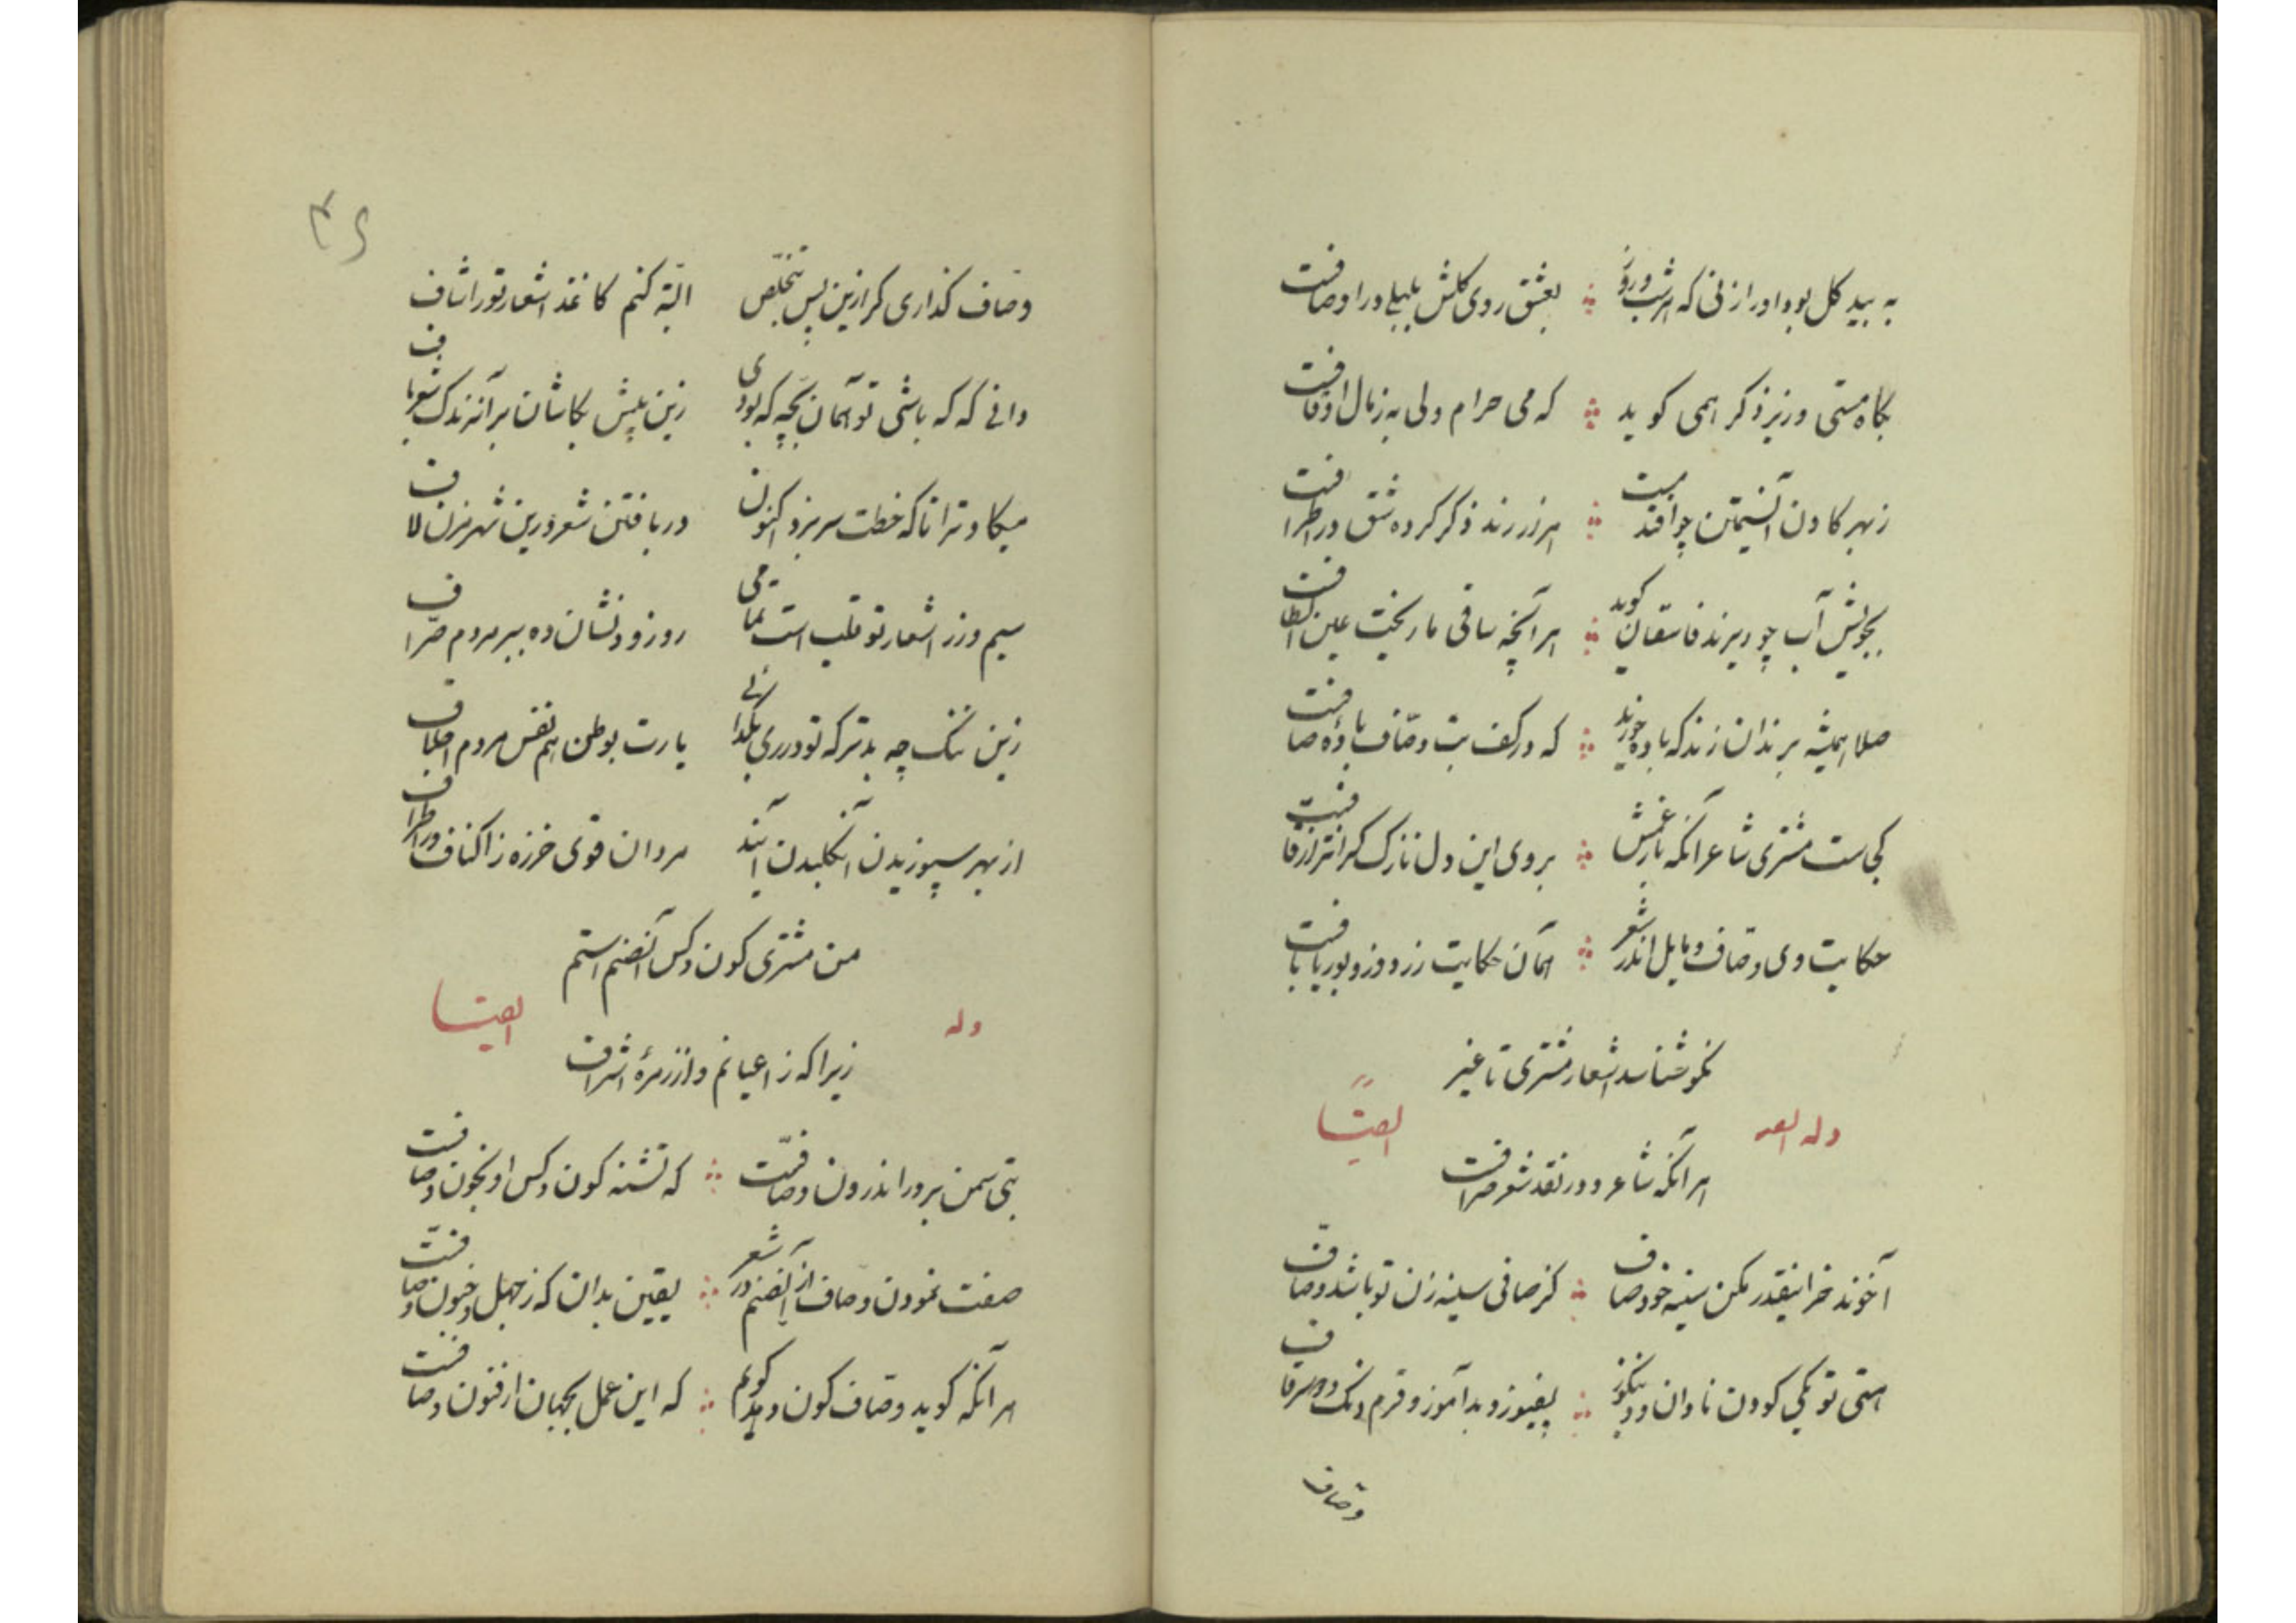 به بید کل بود اورا زنی که هر شب و روز بعشق روی کلش بلبلی دراوصافست
بکاه مستی در زیر ذکر همی کوید که می حرام ولی به زمال اوقافست
ز بهر کادن آن سیمتن چو افتد مست هزار رند ذکر کرده شق در اطرافست
بجویش آب چو ریزند فاسقان کوید هر آنچه ساقی ما ریخت عین الطافست
صلا همیشه برندان زند که باده خورید که در کف بت وصّاف باده صافست
کجاست مشتری شاعر آنکه بار غمش بروی این دل نازک کرانتر از قافست
حکایت وی و وصّاف و مایل اندر شعر همان حکایت زردوز و بوریا بافست
نکو شناسد اشعار مشتری تا غیر
وله ایضاً
هر آنکه شاعر و در نقد شعر صرافست
آخوند خرا اینقدر مکن سینه خود صاف کز صافی سینه زن تو باشد وصّاف
هستی تو یکی کودن نادان و بدآموز و قرمدنک و
وصّاف
وصّاف کذاری کر ازین پس تخلّص البتّه کنم کاغذ اشعار تورا شاف
دانی که که باشی تو همان بچّه که بودی زین پیش بکاشان
میکاد ترا تا که خطت سر بزد اکنون در بافتن شعر درین شهر مزن لاف
سیم و زر اشعار تو قلب است تمامی رو زود نشان ده ببر مردم صرّاف
زین ننک چه بدتر که تو در ری بکدائی یارت بوطن هم نفس مردم اجلاف
از بهر سپوزیدن آن کلبدن آیند مردان قوی خرزه ز اکناف و ز اطراف
من مشتری کون و کس آن صنم استم
وله ایضا
زیرا که ز اعیانم و از زمره اشراف
بتی سمن بر در اندرون وصّافست که تشنه کون و کس او بخون وصّافست
صفت نمودن وصاف از آن صنم در شعر یقین بدان که ز جهل و جنون وصّافست
هر آنکه کوید وصّاف کون دهد کویم که این عمل بجهان از فنون وصّافست